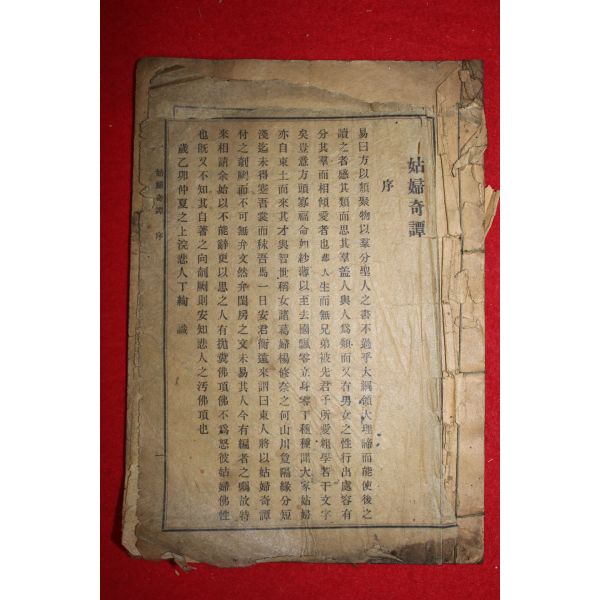 姑婦奇譚
序
易曰方以類聚物以羣分聖人之書不過乎大綱領大理諦而能使後之
讀之者感其類而思其羣盖人與人爲類而又有男女之性行出處容有
分其羣而相傾愛者也悲人生而無兄弟被先君子所愛粗學若干文字
矣豈意方頭寡福命如紗薄以至去國飄零立身零丁種種開大家姑婦
亦自東土而來其才與智世稱女諸葛婦楊修奈之何山川敻隔緣分短
淺迄未得蹇吾裳而秣吾馬一日安君衡遠來謂曰東人將以姑婦奇譚
付之剞劂而不可無弁文然弁閨房之文未易其人今有編者之囑故特
來相請余始以不能辭更以思之人有拋糞佛頂佛不爲怒彼姑婦佛性
也旣又不知其自著之向剞劂則安知悲人之汚佛頂也
歲乙卯仲夏之上浣悲人丁絢 識
姑婦奇譚 序
一